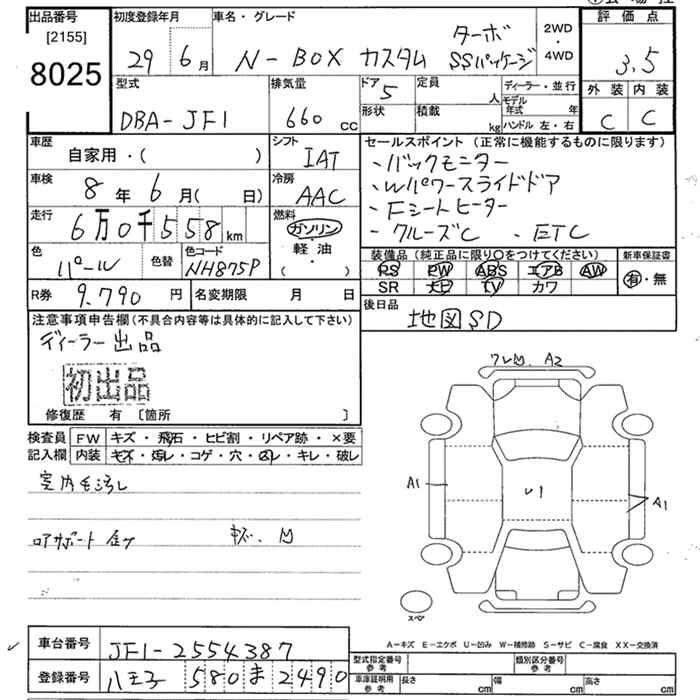 出品番号
[2155]
8025
初度登録年月
29 6月
車名・グレード
N-BOX カスタム ターボ SSパッケージ
2WD・4WD
評価点
3.5
外装 内装
C C
型式
DBA-JF1
排気量
660 cc
ドア 5
形状
定員 人
積載 kg
ディーラー・並行
モデル年式 年
ハンドル 左・右
車歴
自家用・( )
シフト
IAT
車検
8年6月( 日)
冷房
AAC
走行
6万0千558km
燃料
ガソリン
軽・油
( )
色
パール
色替
色コード
NH875P
R券 9.790円
名変期限 月 日
セールスポイント(正常に機能するものに限ります)
・バックモニター
・Wパワースライドドア
・Fシートヒーター
・クルーズC ・ETC
装備品(純正品に限り〇をつけてください)
PS PW ABS エアB AW
SR ナビ TV カワ
新車保証書
有・無
後日品
地図SD
注意事項申告欄(不具合内容等は具体的に記入して下さい)
ディーラー出品
初出品
修復歴 有 〔箇所 〕
検査員記入欄
FW キズ・飛石・ヒビ割・リペア跡・×要
内装 キズ・汚レ・コゲ・穴・凹レ・キレ・破レ
室内毛汚レ
ロアサポート 金ケ キズ、凹
ワレ凹 A2
A1
U1
A1
スペア
A-キズ E-エクボ U-凹み W-補修跡 S-サビ C-腐食 XX-交換済
車台番号
JF1-2554387
登録番号
八王子 580 ま 2490
型式指定番号 参考
類別区分番号 参考
車庫証明用 参考
長さ cm 幅 cm 高さ cm